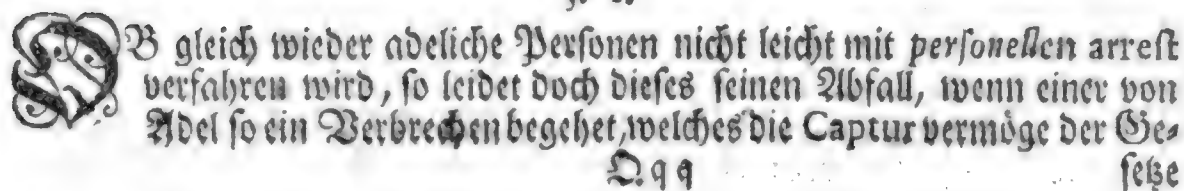 OB gleich wieder adeliche Personen nicht leicht mit personellen arrest
verfahren wird, so leidet doch dieses seinen Abfall, wenn einer von
Adel so ein Verbrechen begehet, welches die Captur vermöge der Ge-
Qqq setze